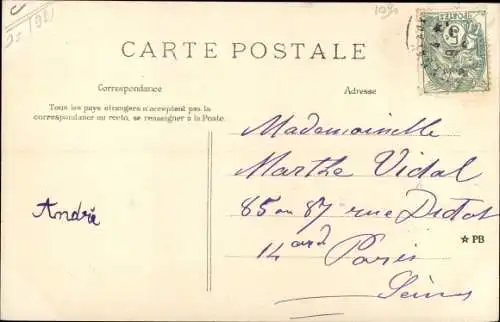 CARTE POSTALE
Correspondance
Adresse
Tous les pays étrangers n'acceptent pas la
correspondance au recto, se renseigner à la Poste.
André
Mademoiselle
Marthe Vidal
85 ou 87 rue Didot
14 ard Paris
Seine
★ PB
POSTES
5